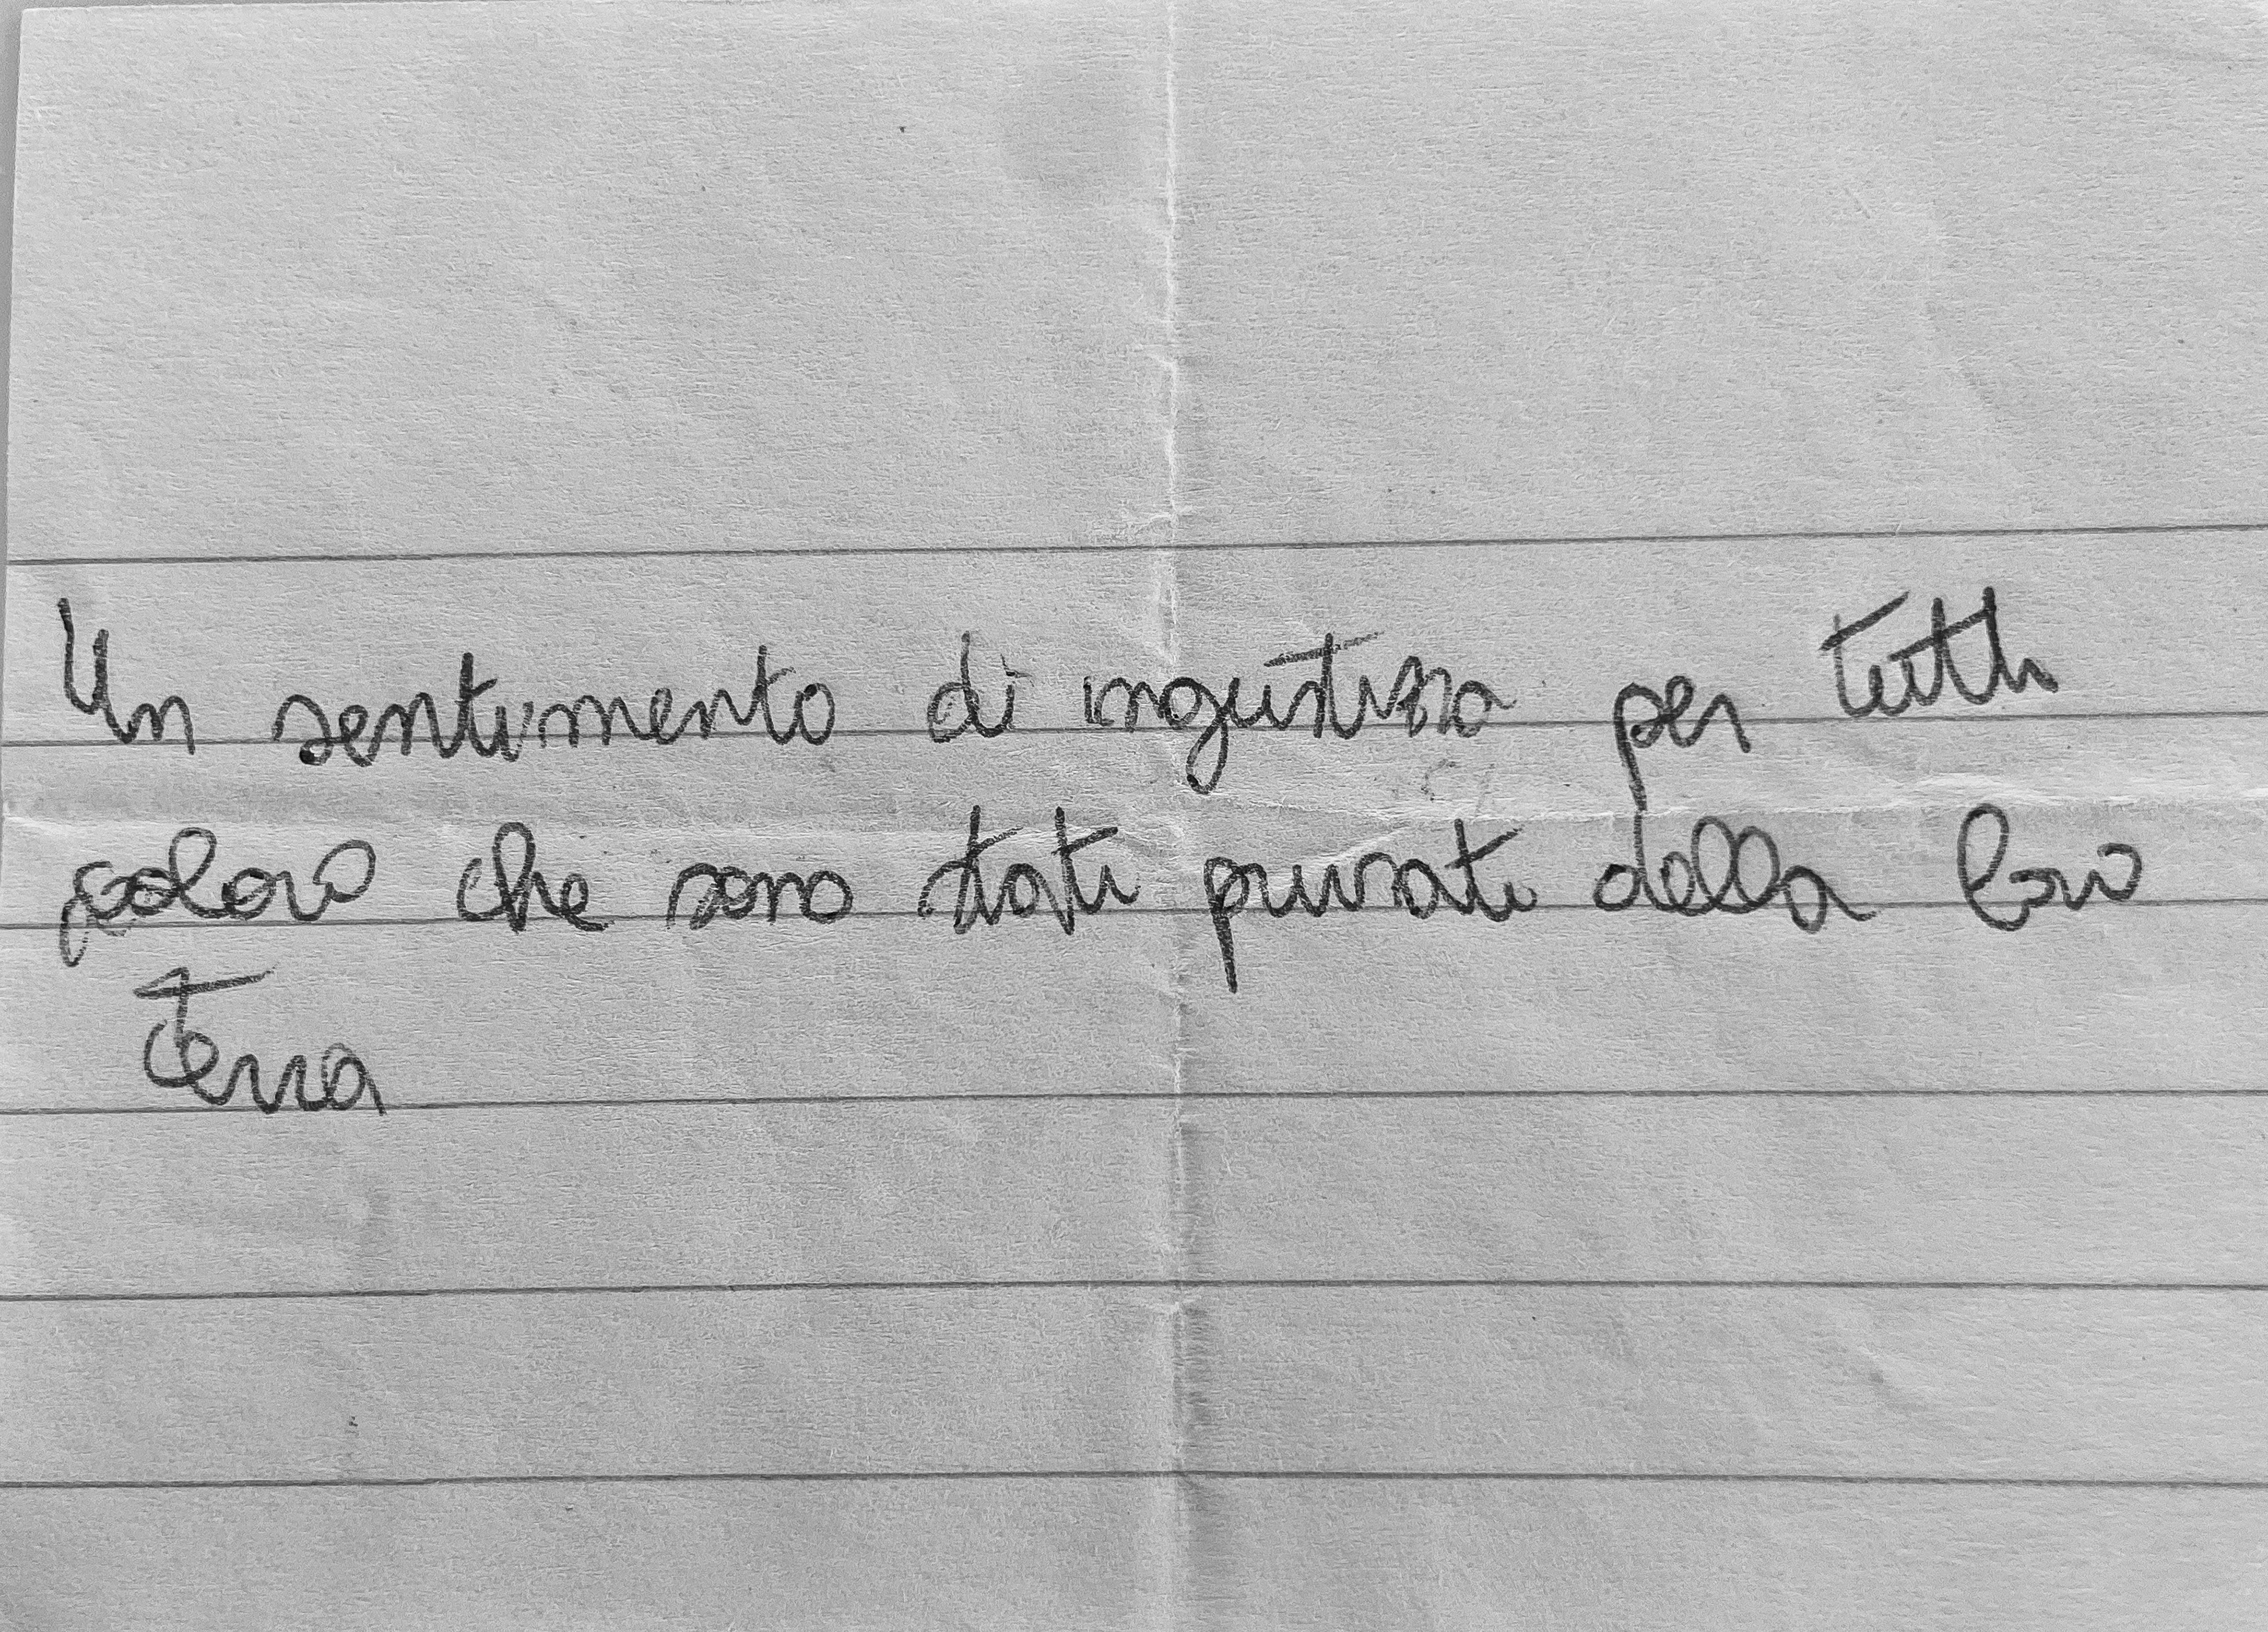 Un sentimento di ingiustizia per tutti
coloro che sono stati privati della loro
terra